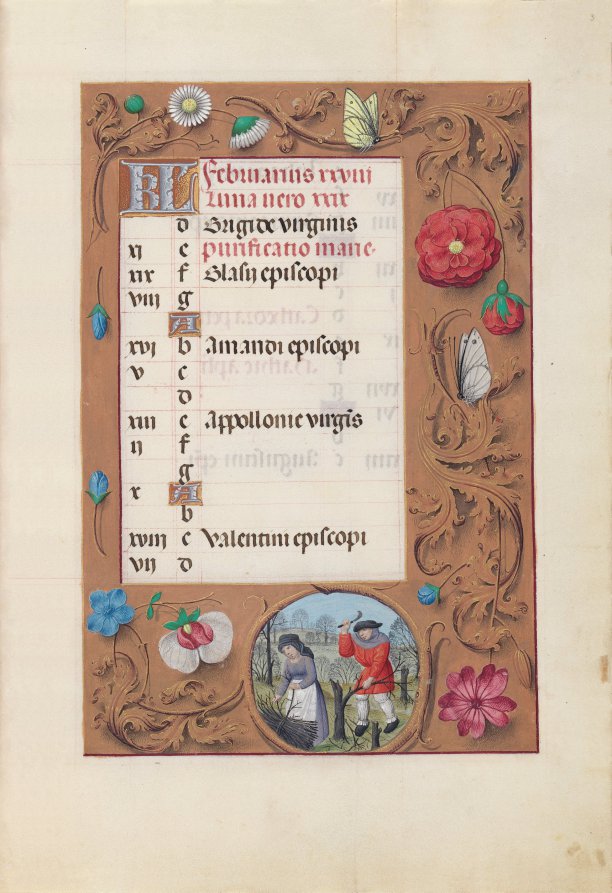 3
KL Februarius xxviii
Luna uero xxix
d Brigide virginis
xi e Purificatio marie
xix f Blasij episcopi
viii g
A
xvi b Amandi episcopi
v c
d
xiii e Appollonie virgīs
ii f
g
x A
b
xviii c Valentini episcopi
vii d